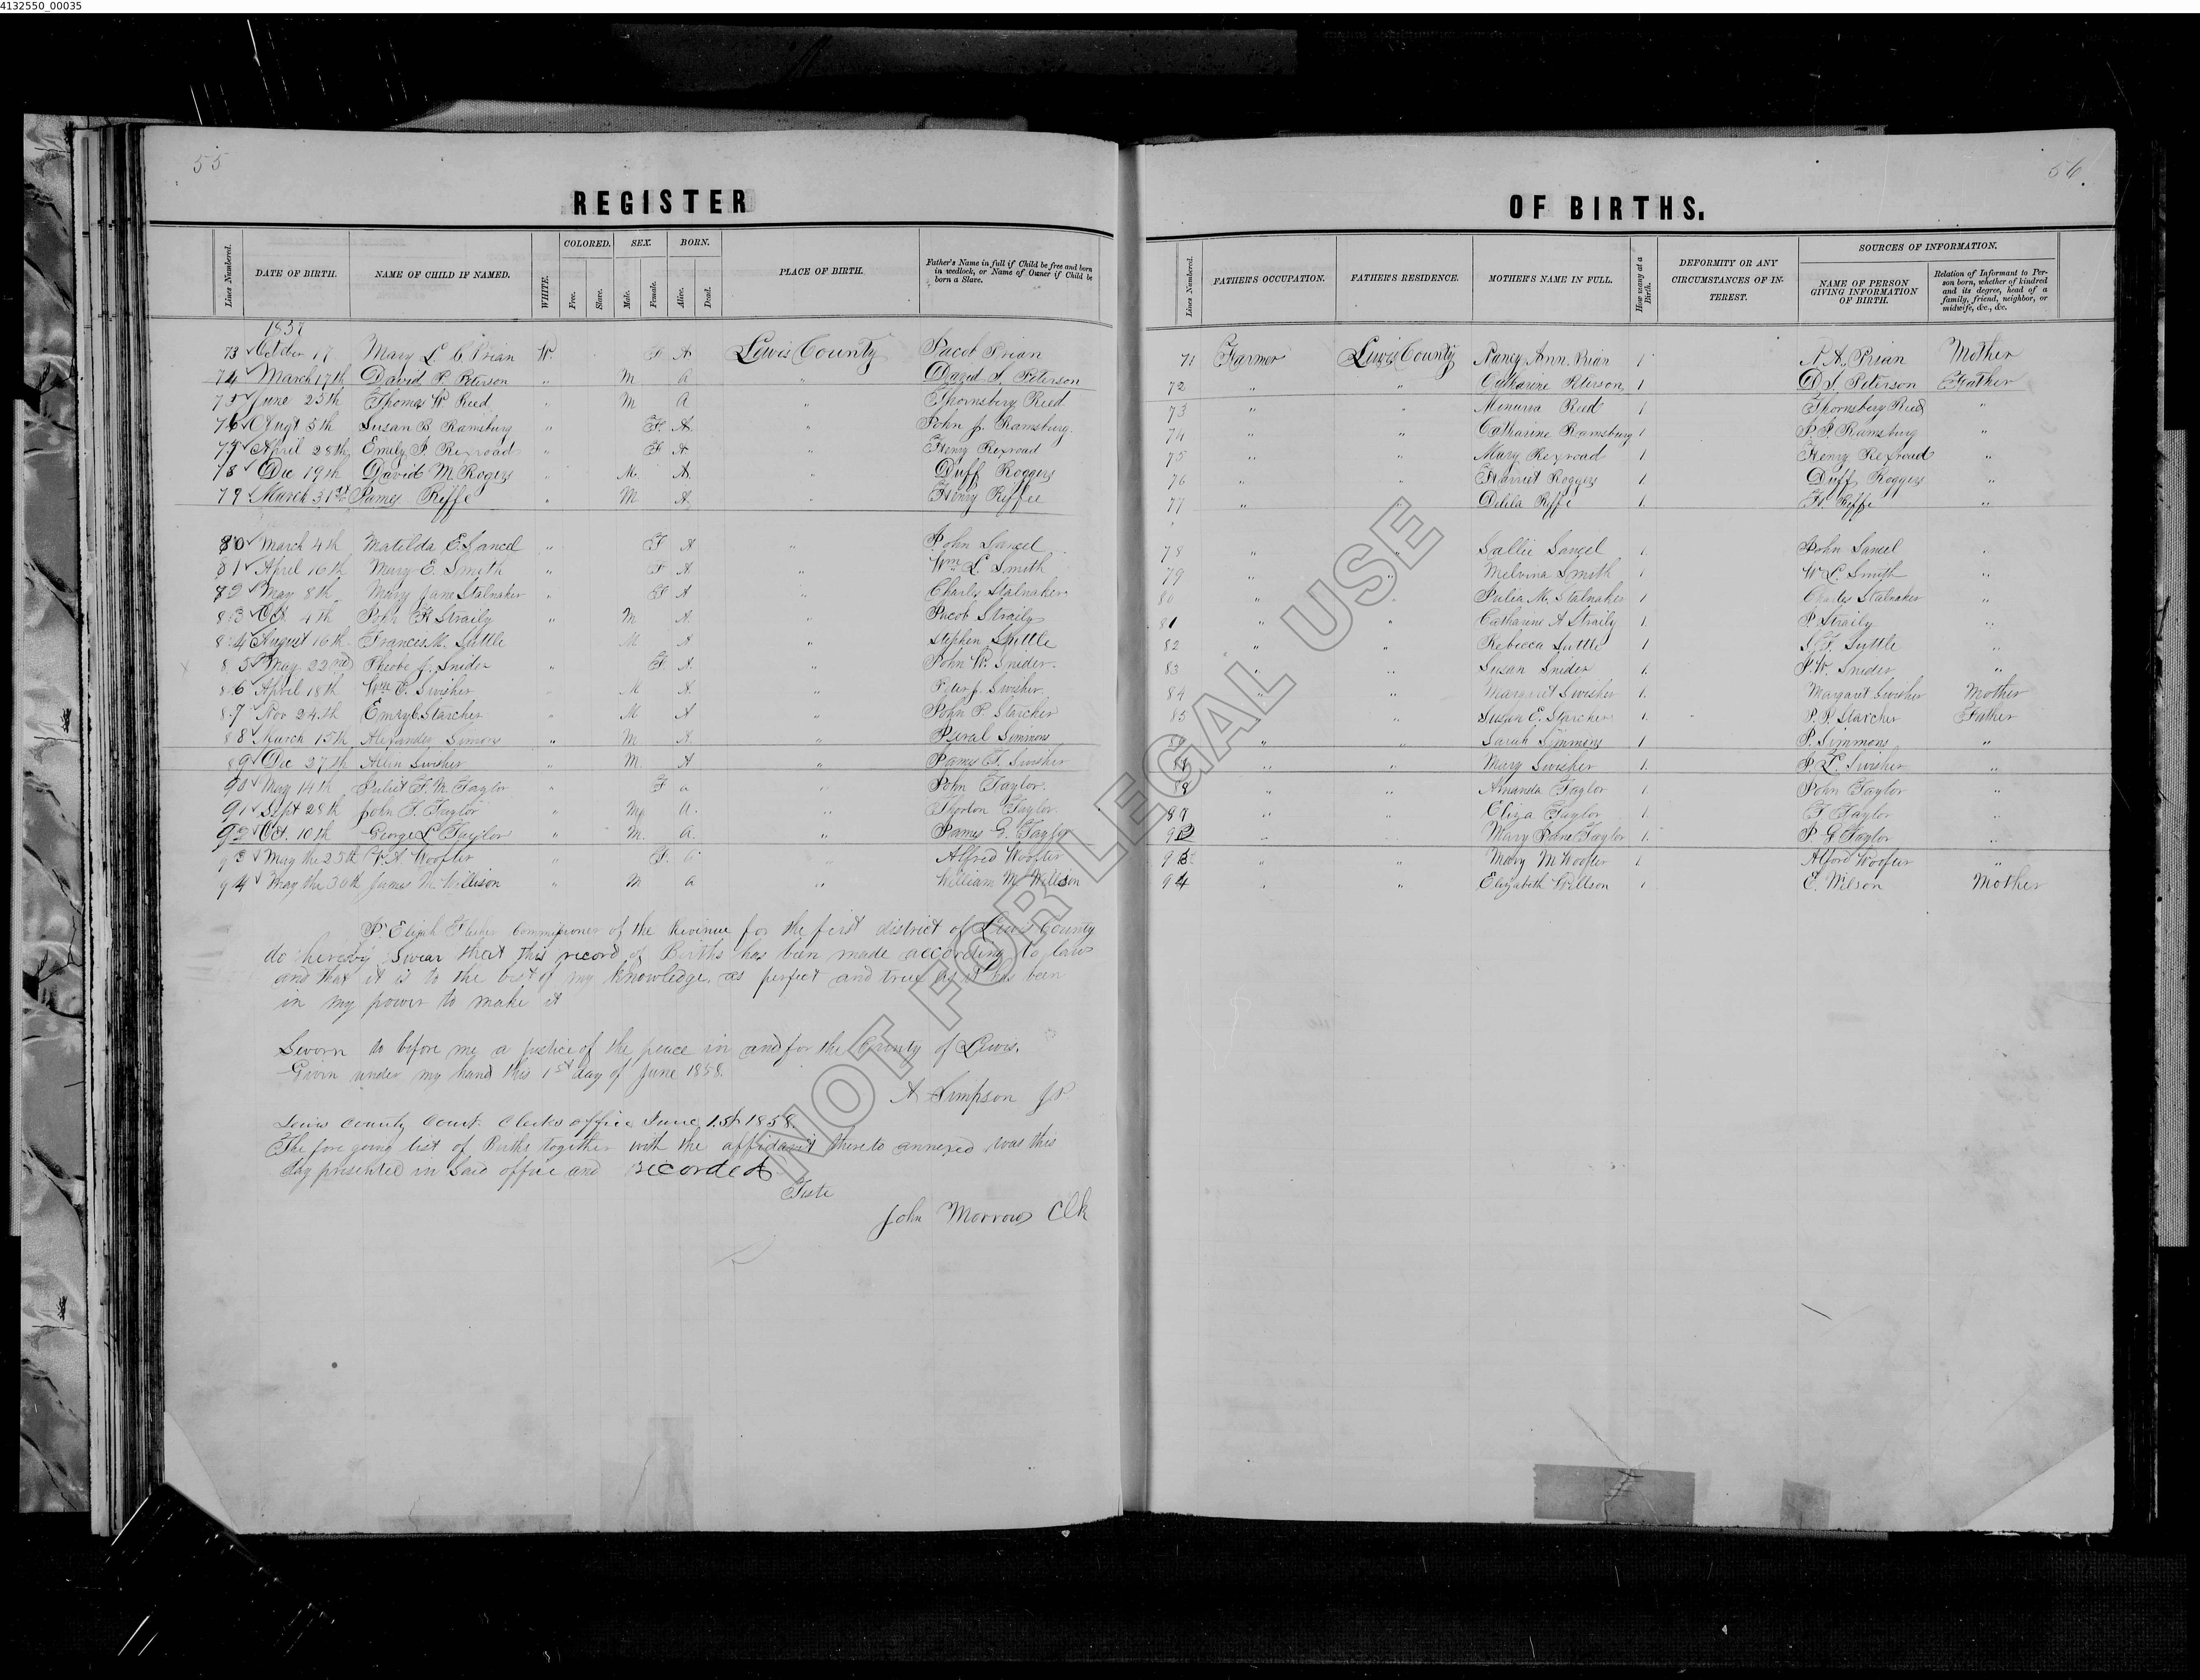 4132550_00035
55
REGISTER
Lines Numbered. DATE OF BIRTH. NAME OF CHILD IF NAMED. WHITE. COLORED. Free. Slave. SEX. Male. Female. BORN. Alive. Dead. PLACE OF BIRTH. Father's Name in full if Child be free and born in wedlock, or Name of Owner if Child be born a Slave.
1857
73 October 17 Mary L C Prian W. F A Lewis County Jacob Prian
74 March 17th David P. Peterson " M A " David S. Peterson
75 June 25th Thomas W Reed " M A " Thornsbery Reed
76 Augt 5th Susan B Ramsburg " F. A. " John J. Ramsburg.
77 April 28th Emily F. Rexroad " F A " Henry Rexroad
78 Dec 19th David M Rogers " M. A. " Duff Roggers
79 March 31st James Riffe " M A " Henry Riffee
80 March 4th Matilda E. Sancel " F A " John Sancel
81 April 16th Mary E. Smith " F A " Wm L. Smith
82 May 8th Mary Jane Stalnaker " F A " Charles Stalnaker
83 Oct 4th John H Straily " M A " Jacob Straily
84 August 16th Frances M. Suttle M A " Stephen Suttle
85 May 22nd Pheobe J. Snider " F. A. " John W. Snider.
86 April 18th Wm C. Swisher M A. " Peter J. Swisher
87 Nov 24th Emry C. Starcher " M A " John P. Starcher
88 March 15th Alexander Simons " M. A " Peral Simmons
89 Dec 27th Allen Swisher " M. A " James F. Swisher
90 May 14th Juliet F. M. Taylor " F a " John Taylor.
91 Sept 28th John T. Taylor " M a. " Thorton Taylor.
92 Oct. 10th George L Taylor " M. a. " James G. Taylor
93 May the 25th V. A Woofter " F. a " Alfred Woofter
94 May the 30th James M. Willison " M a " William M. Willson
I Elijah Flesher Commissioner of the Revinue for the first district of Lewis County
do hereby swear that this record of Births has been made according to law
and that it is to the best of my knowledge, as perfect and true as it has been
in my power to make it
Sworn to before me a justice of the peace in and for the County of Lewis.
Given under my hand this 1st day of June 1858.
A Simpson J P.
Lewis County Court Clerks office June 1st 1858
The fore going list of Births together with the affidavit thereto annexed was this
day presented in said office and recorded
Teste
John Morrow Clk
56
OF BIRTHS.
Lines Numbered. FATHER'S OCCUPATION. FATHER'S RESIDENCE. MOTHER'S NAME IN FULL. How many at a Birth. DEFORMITY OR ANY CIRCUMSTANCES OF INTEREST. SOURCES OF INFORMATION. NAME OF PERSON GIVING INFORMATION OF BIRTH. Relation of Informant to Person born, whether of kindred and its degree, head of a family, friend, neighbor, or midwife, &c., &c.
71 Farmer Lewis County Nancy Ann Prian 1 N. A. Prian Mother
72 " " Catharine Peterson 1 D S. Peterson Father
73 " " Menurva Reed 1 Thornsbery Reed "
74 " " Catharine Ramsburg 1 J. J. Ramsburg "
75 " " Mary Rexroad 1 Henry Rexroad "
76 " " Harriet Roggers 1 Duff Roggers "
77 " " Delila Riffe 1. H. Riffe "
78 " " Sallie Sancel 1. John Sancel "
79 " " Melvina Smith 1 W L. Smith "
80 " " Julia M. Stalnaker 1 Charles Stalnaker "
81 " " Catharine A Straily 1. J. Straily "
82 " " Rebecca Suttle 1 S. F. Suttle "
83 " " Susan Snider 1 J. W. Snider "
84 " " Margaret Swisher 1. Margaret Swisher Mother
85 " Susan E. Starcher 1. J. P. Starcher Father
" " Sarah Simmons 1 P. Simmons "
" " Mary Swisher 1. J. F. Swisher "
" " Amanda Taylor 1 John Taylor "
" " Eliza Taylor 1. T Taylor "
92 " " Mary Jane Taylor 1. J G Taylor "
93 " " Mary M Woofter 1 Alford Woofter "
94 " " Elizabeth Willson 1 E. Wilson Mother
NOT FOR LEGAL USE